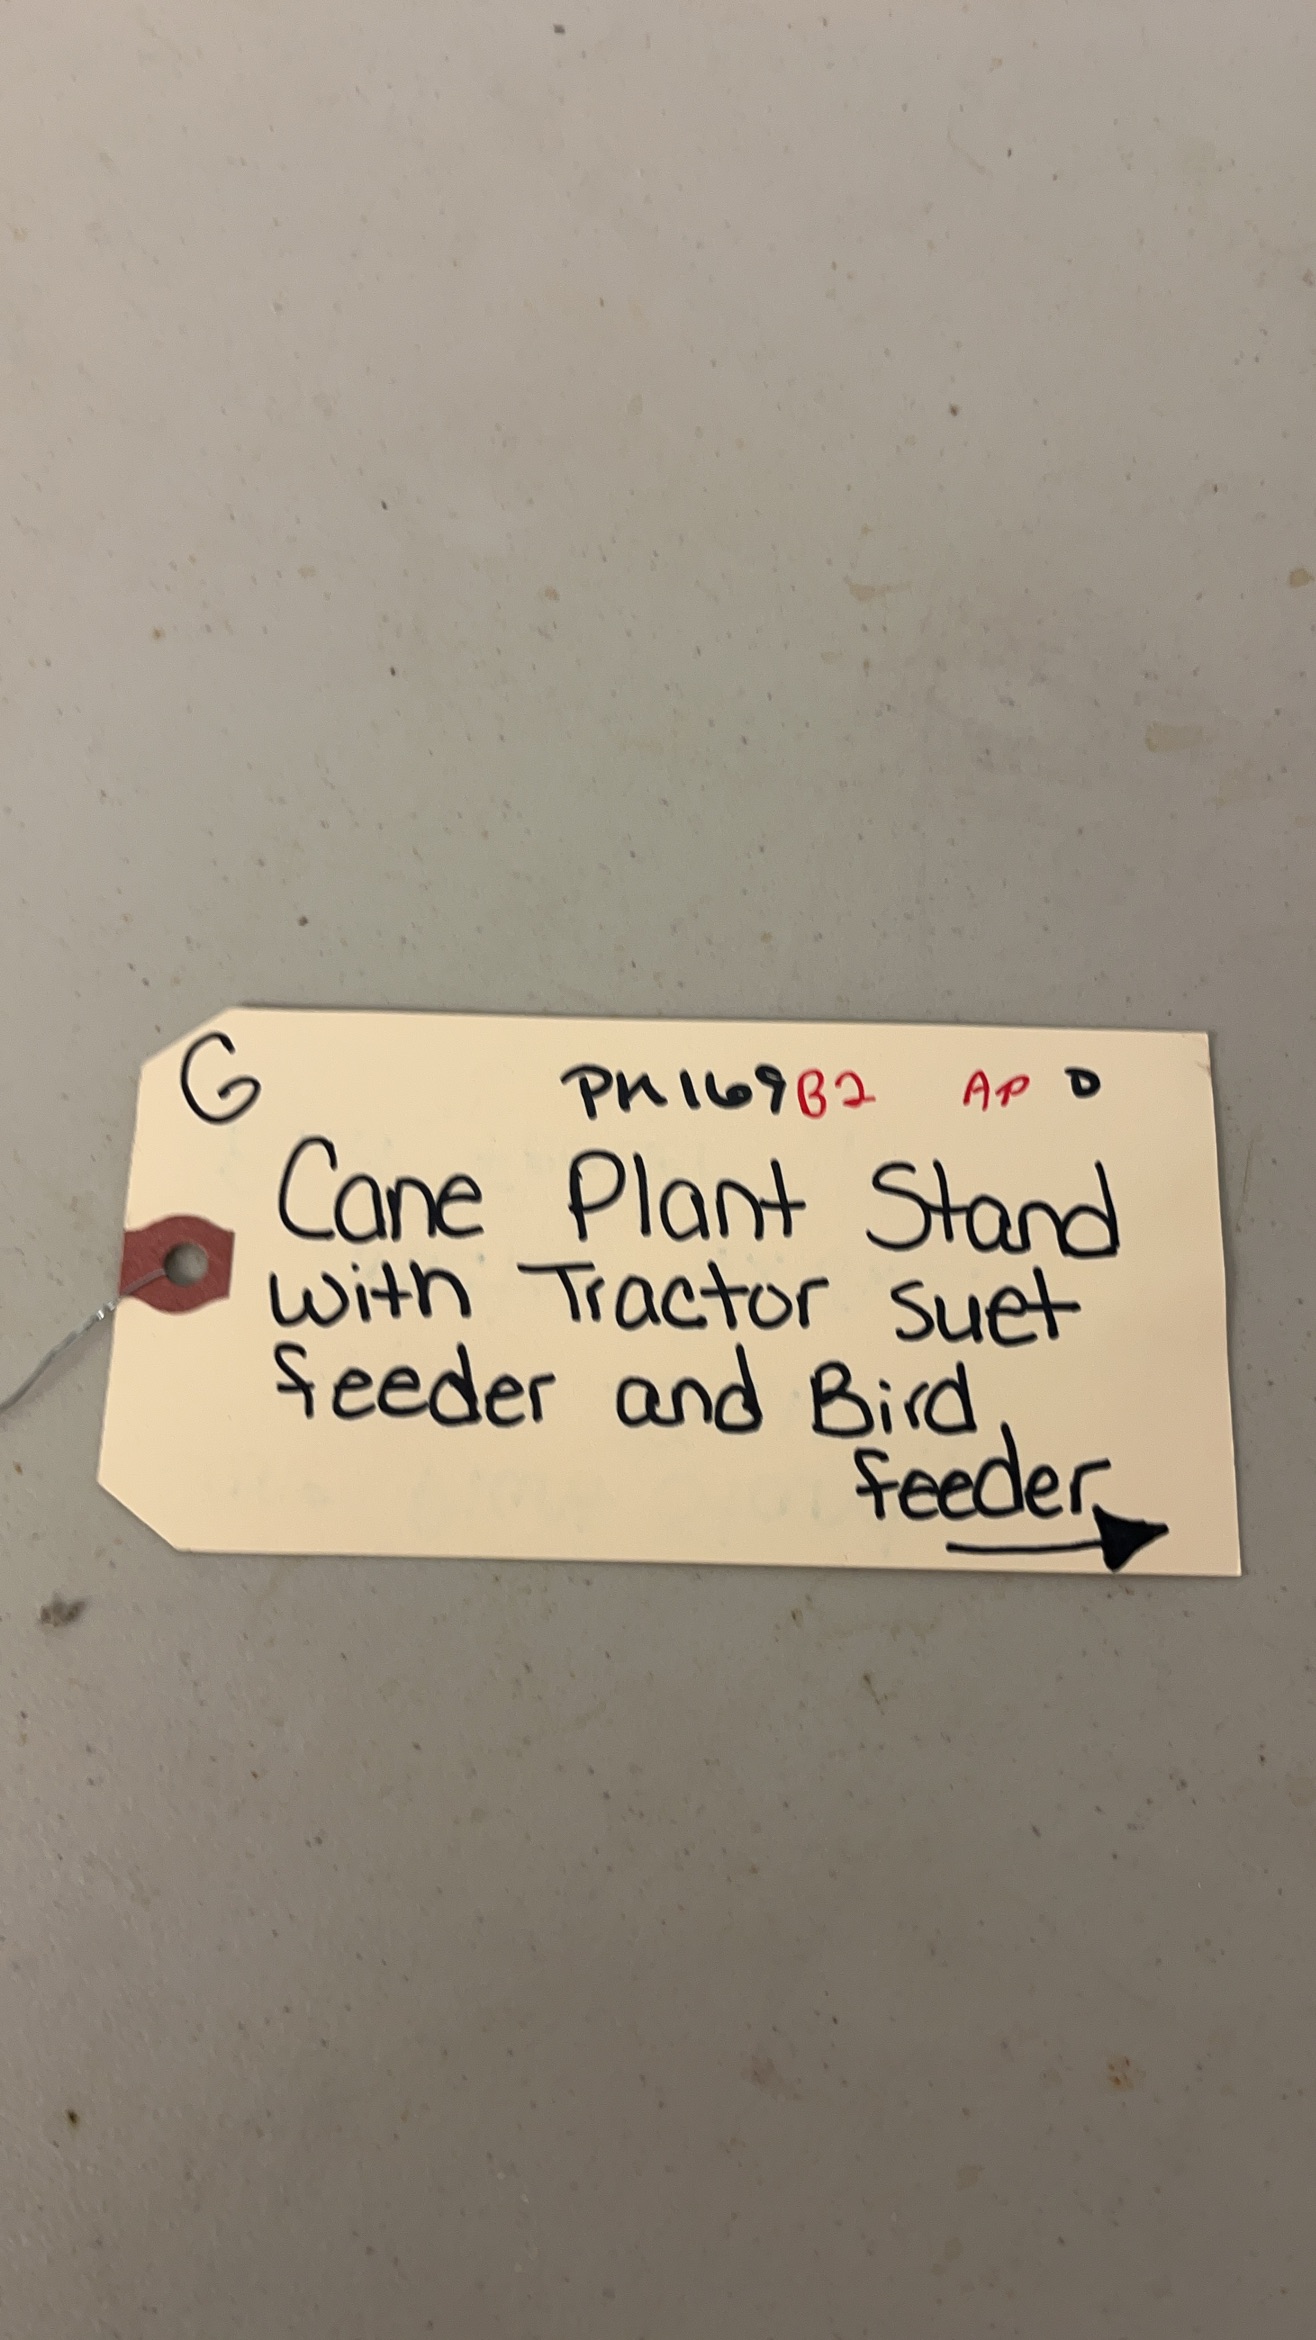 G PK169 B2 AP D
Cane Plant Stand
with Tractor suet
feeder and Bird
feeder